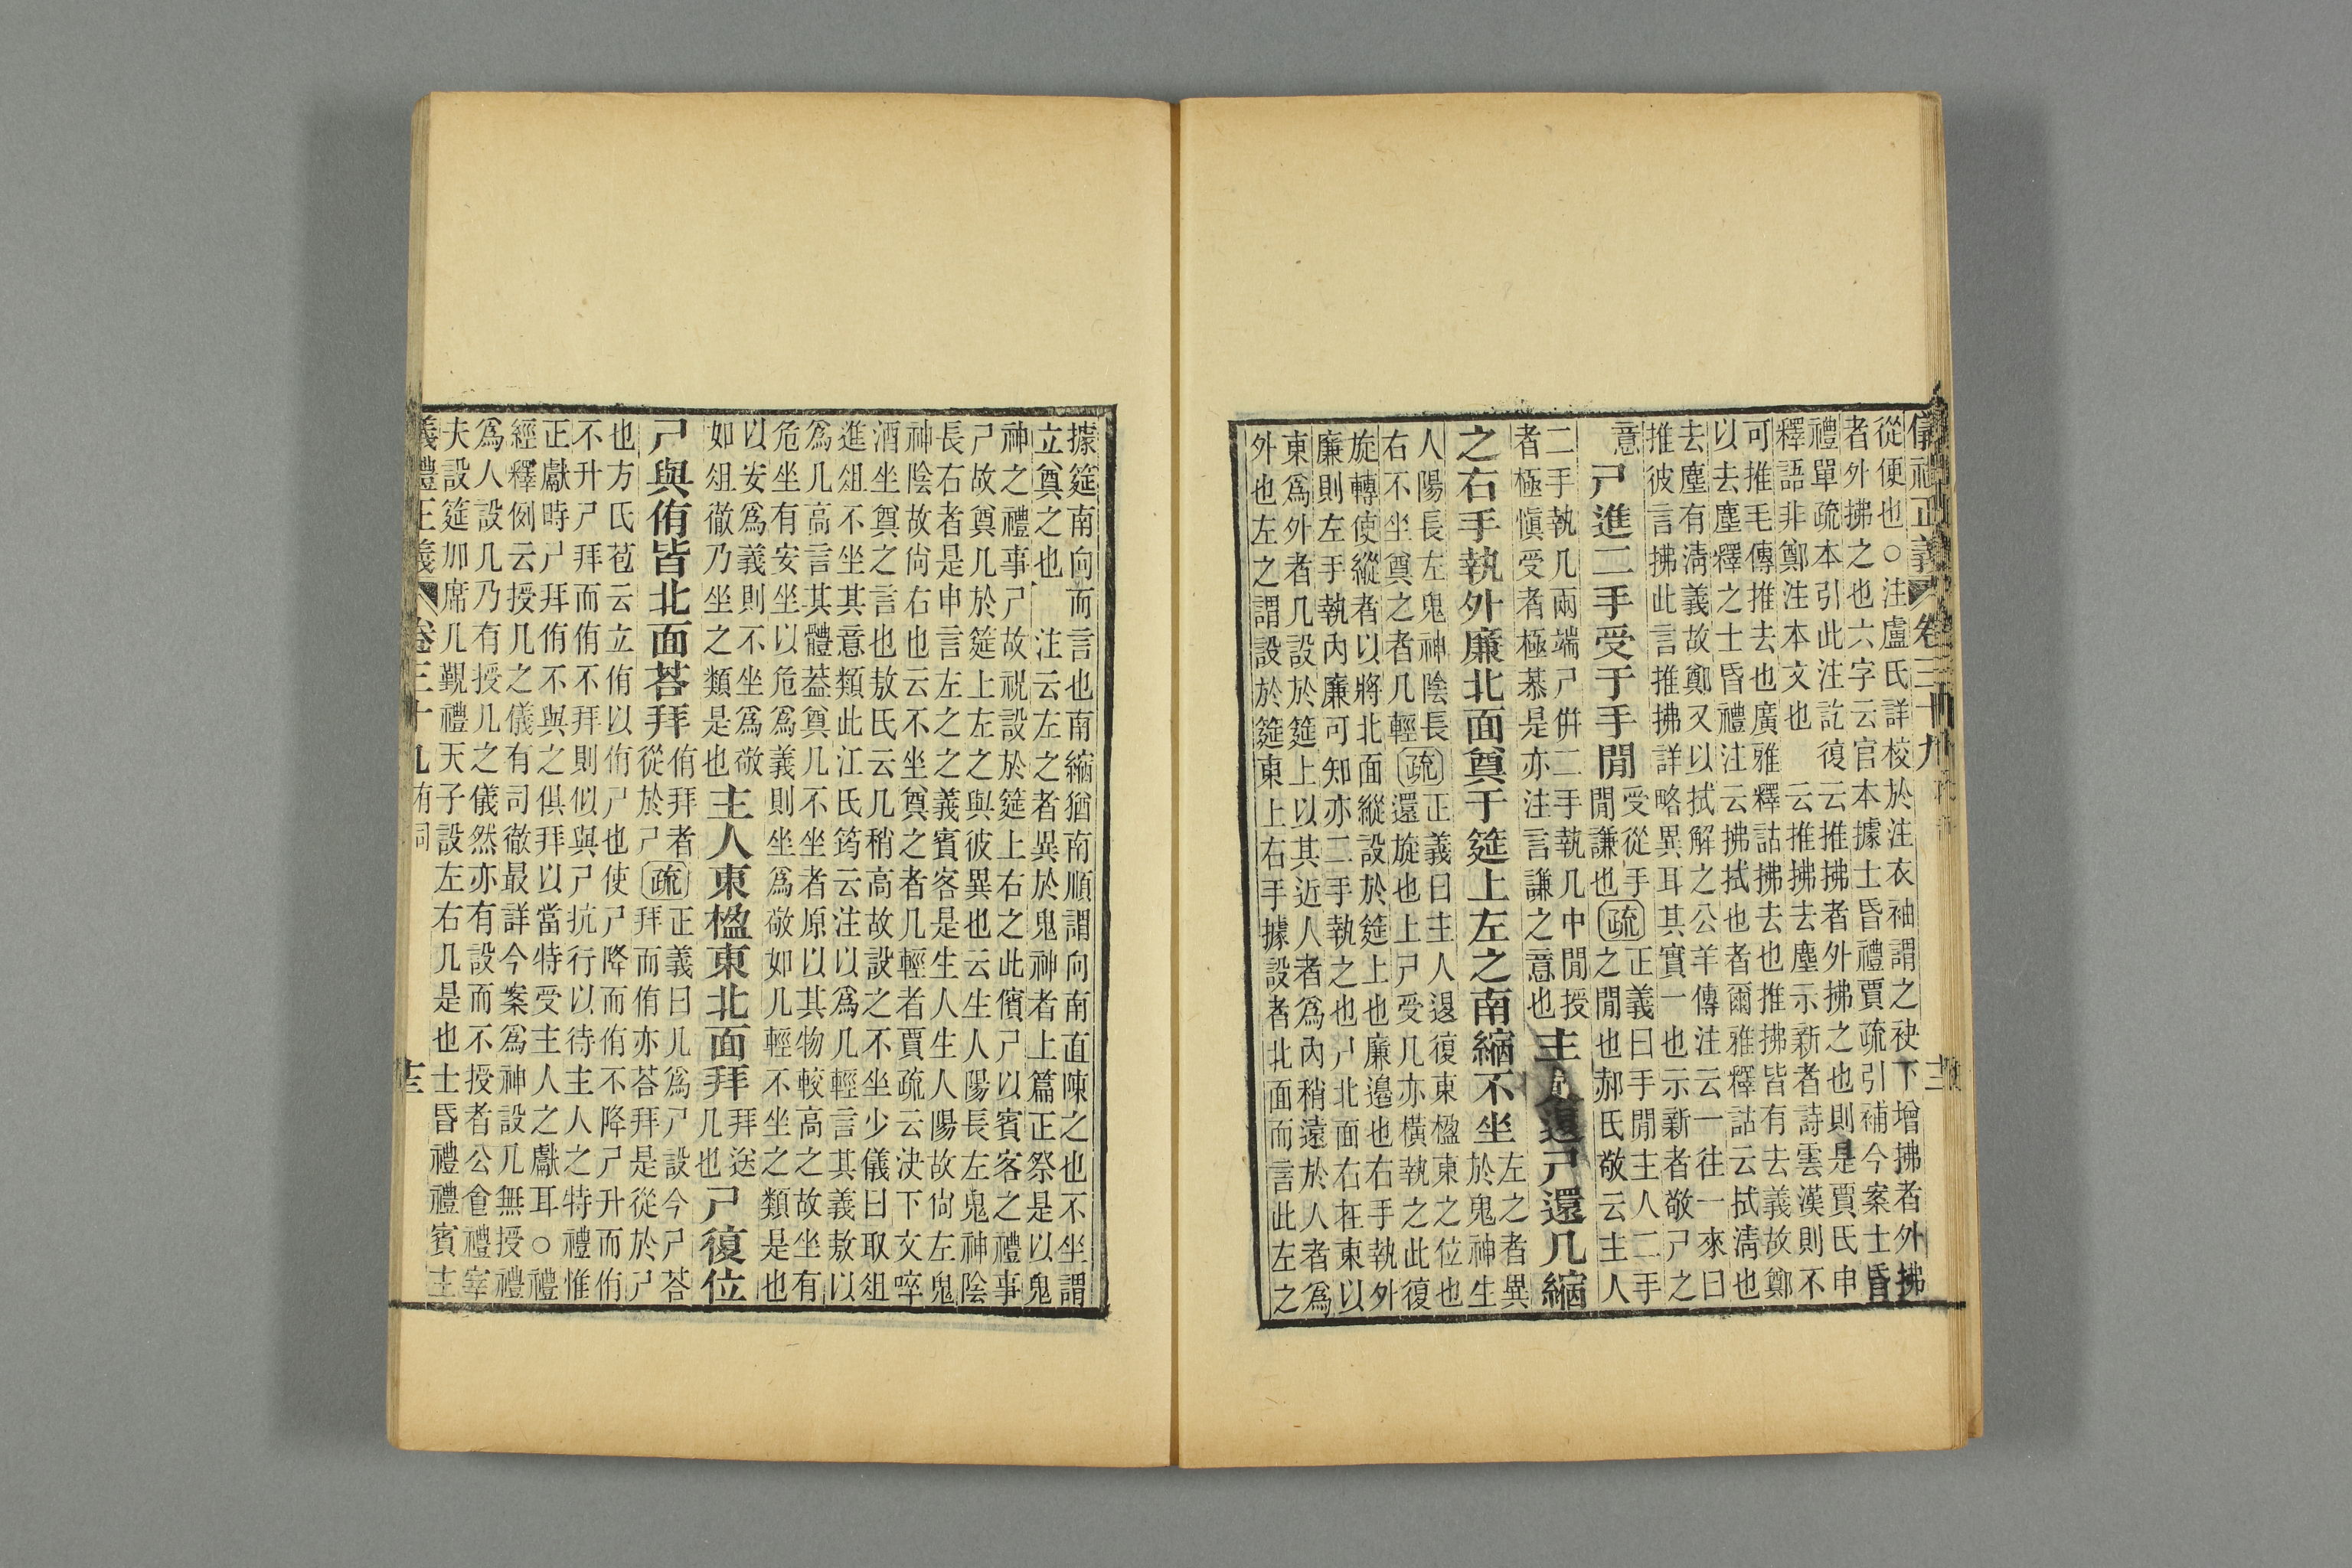 儀禮正義 卷三十九
從便也○注盧氏詳校於注衣袖謂之袂下增拂者外拂
者外拂之也六字云官本據士昏禮賈疏引補今案士昏
禮單疏本引此注訖復云推拂者外拂之也則是賈氏申
釋語非鄭注本文也 云推拂去塵示新者詩雲漢則不
可推毛傳推去也廣雅釋詁拂去也推拂皆有去義故鄭
以去塵釋之士昏禮注云拂拭也者爾雅釋詁云拭淸也
去塵有淸義故鄭又以拭解之公羊傳注云一往一來曰
推彼言拂此言推拂詳略異耳其實一也示新者敬尸之
意
尸進二手受于手閒
受從手
閒謙也
疏
正義曰手閒主人二手
之閒也郝氏敬云主人
二手執几兩端尸倂二手執几中閒授
者極愼受者極恭是亦注言謙之意也
主人退尸還几縮
之右手執外廉北面奠于筵上左之南縮不坐
左之者異
於鬼神生
人陽長左鬼神陰長
右不坐奠之者几輕
疏
正義曰主人退復東楹東之位也
還旋也上尸受几亦橫執之此復
旋轉使縱者以將北面縱設於筵上也廉邉也右手執外
廉則左手執內廉可知亦二手執之也尸北面右在東以
東爲外者几設於筵上以其近人者爲內稍遠於人者爲
外也左之謂設於筵東上右手據設者北面而言此左之
據筵南向而言也南縮猶南順謂向南直陳之也不坐謂
立奠之也 注云左之者異於鬼神者上篇正祭是以鬼
神之禮事尸故祝設於筵上右之此儐尸以賓客之禮事
尸故奠几於筵上左之與彼異也云生人陽長左鬼神陰
長右者是申言左之之義賓客是生人生人陽故尙左鬼
神陰故尙右也云不坐奠之者几輕者賈疏云決下文啐
酒坐奠之言也敖氏云几稍高故設之不坐少儀曰取俎
進俎不坐其意類此江氏筠云注以爲几輕言其義敖以
爲几高言其體葢奠几不坐者原以其物較高之故坐有
危坐有安坐以危爲義則坐爲敬如几輕不坐之類是也
以安爲義則不坐爲敬
如俎徹乃坐之類是也
主人東楹東北面拜
拜送
几也
尸復位
尸與侑皆北面荅拜
侑拜者
從於尸
疏
正義曰几爲尸設今尸荅
拜而侑亦荅拜是從於尸
也方氏苞云立侑以侑尸也使尸降而侑不降尸升而侑
不升尸拜而侑不拜則似與尸抗行以待主人之特禮惟
正獻時尸拜侑不與之俱拜以當特受主人之獻耳○禮
經釋例云授几之儀有司徹最詳今案爲神設几無授禮
爲人設几乃有授几之儀然亦有設而不授者公食禮宰
夫設筵加席几覲禮天子設左右几是也士昏禮禮賓主
儀禮正義 卷三十九 有司